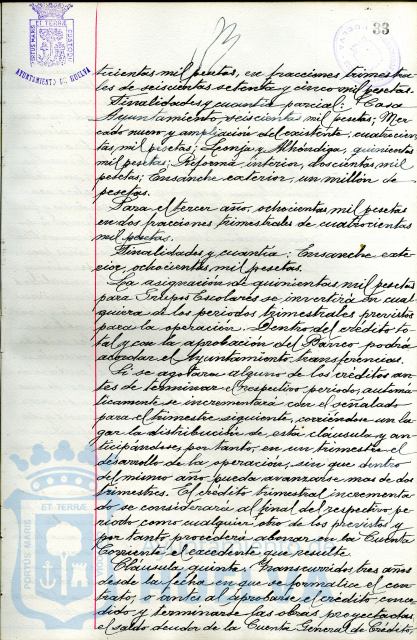 33
PORTUS MARIS ET TERRÆ CUSTODIA
AYUNTAMIENTO DE HUELVA
cientas mil pesetas, en fracciones trimestra-
les de seiscientas setenta y cinco mil pesetas.
Finalidades y cuantía parcial: Casa
Ayuntamiento, seiscientas mil pesetas; Mer-
cado nuevo y ampliación del existente, cuatrocien-
tas mil pesetas; Lonja y Alhóndiga, quinientas
mil pesetas; Reforma interior, doscientas mil
pesetas; Ensanche exterior, un millón de
pesetas.
Para el tercer año, ochocientas mil pesetas
en dos fracciones trimestrales de cuatrocientas
mil pesetas.
Finalidades y cuantía: Ensanche exte-
rior, ochocientas mil pesetas.
La asignación de quinientas mil pesetas
para Grupos Escolares se invertirá en cual-
quiera de los periodos trimestrales previstos
para la operación. Dentro del crédito to-
tal y con la aprobación del Banco podrá
acordar el Ayuntamiento transferencias.
Si se agotara alguno de los créditos an-
tes de terminar el respectivo periodo, automá-
ticamente se incrementará con el señalado
para el trimestre siguiente, corriéndose un lu-
gar la distribución de esta cláusula y an-
ticipándose, por tanto, en un trimestre el
desarrollo de la operación, sin que dentro
del mismo año pueda avanzarse mas de dos
trimestres. El crédito trimestral incrementa-
do se considerará al final del respectivo pe-
riodo como cualquier otro de los previstos y
por tanto procederá abonar en la Cuenta
Corriente el excedente que resulte.
Cláusula quinta: Transcurridos tres años
desde la fecha en que se formalice el con-
trato, o antes al agotarse el crédito, conce-
dido y terminarse las obras proyectadas,
el saldo deudor de la Cuenta General de Crédito
PORTUS MARIS ET TERRÆ